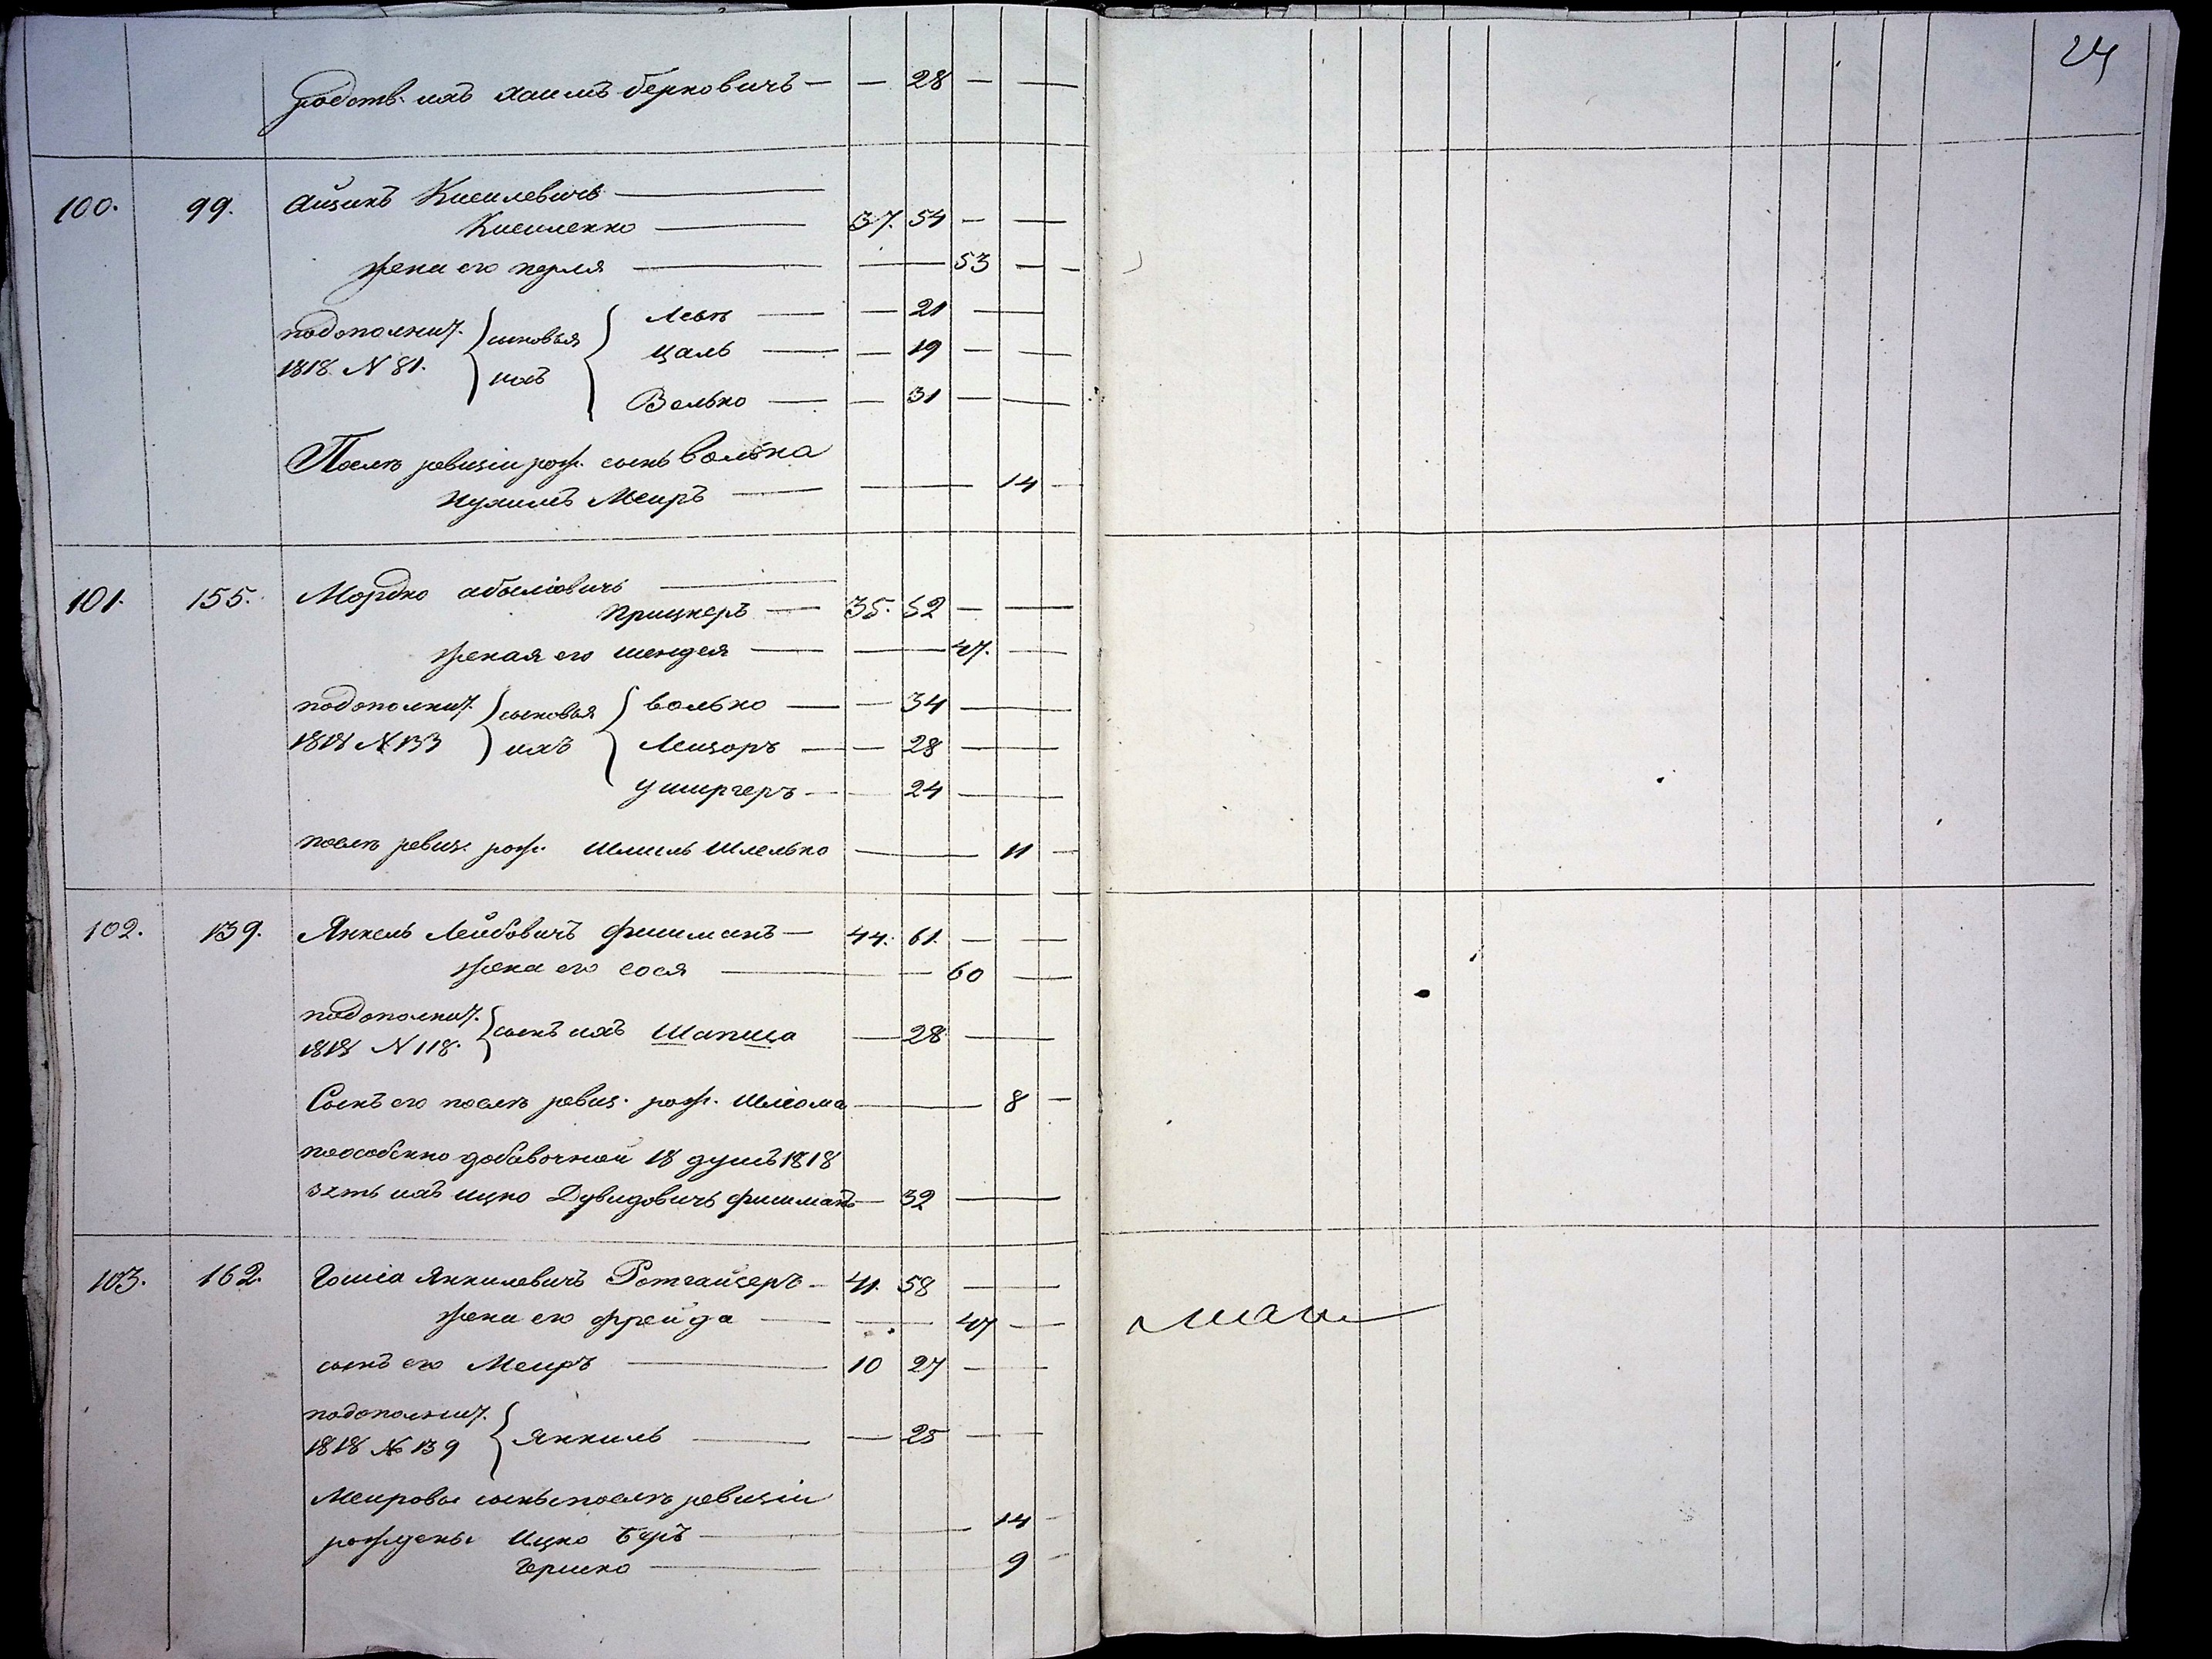 24
родств. ихъ Хаимъ Берковичъ — — 28 — —
100. 99. Айзикъ Кисилевичъ —
Кисиленко — 37. 54 — —
жена его Перля — — 53 — —
подополнит. сыновья Лейб — — 21 —
1818 N 81. ихъ Цаль — — 19 — —
Волько — — 31 — —
Послѣ ревизіи рож. сынъ Волька
Нухимъ Меиръ — — 14 —
101. 155. Мордко Абыліовичъ —
Прицкеръ — 35. 52 — —
женая его Шендея — — 47. —
подополнит. сыновья Волько — — 34 —
1818 N 133 ихъ Лейзоръ — — 28 —
Уширгеръ — — 24 —
послѣ ревиз. рож. Шмиль Шлелько — 11 —
102. 139. Янкель Лейбовичъ Фишманъ — 44. 61. — —
жена его Сося — — 60 —
подополнит.
1818 N 118. сынъ ихъ Шапша — 28 —
Сынъ его послѣ ревиз. рож. Шліома — 8 —
поособенно добавочной 18 душъ 1818
зять ихъ Ицко Дувидовичъ Фишманъ — 32 —
103. 162. Гошіа Янкилевичъ Ротгайзеръ — 41. 58 —
жена его Фрейда — — 47 —
сынъ его Меиръ — 10 27 —
подополнит.
1818 № 139 Янкиль — — 25 — —
Меирове сыны послѣ ревизіи
рождены Ицко Беръ — — 14 —
Гершко — — 9 —